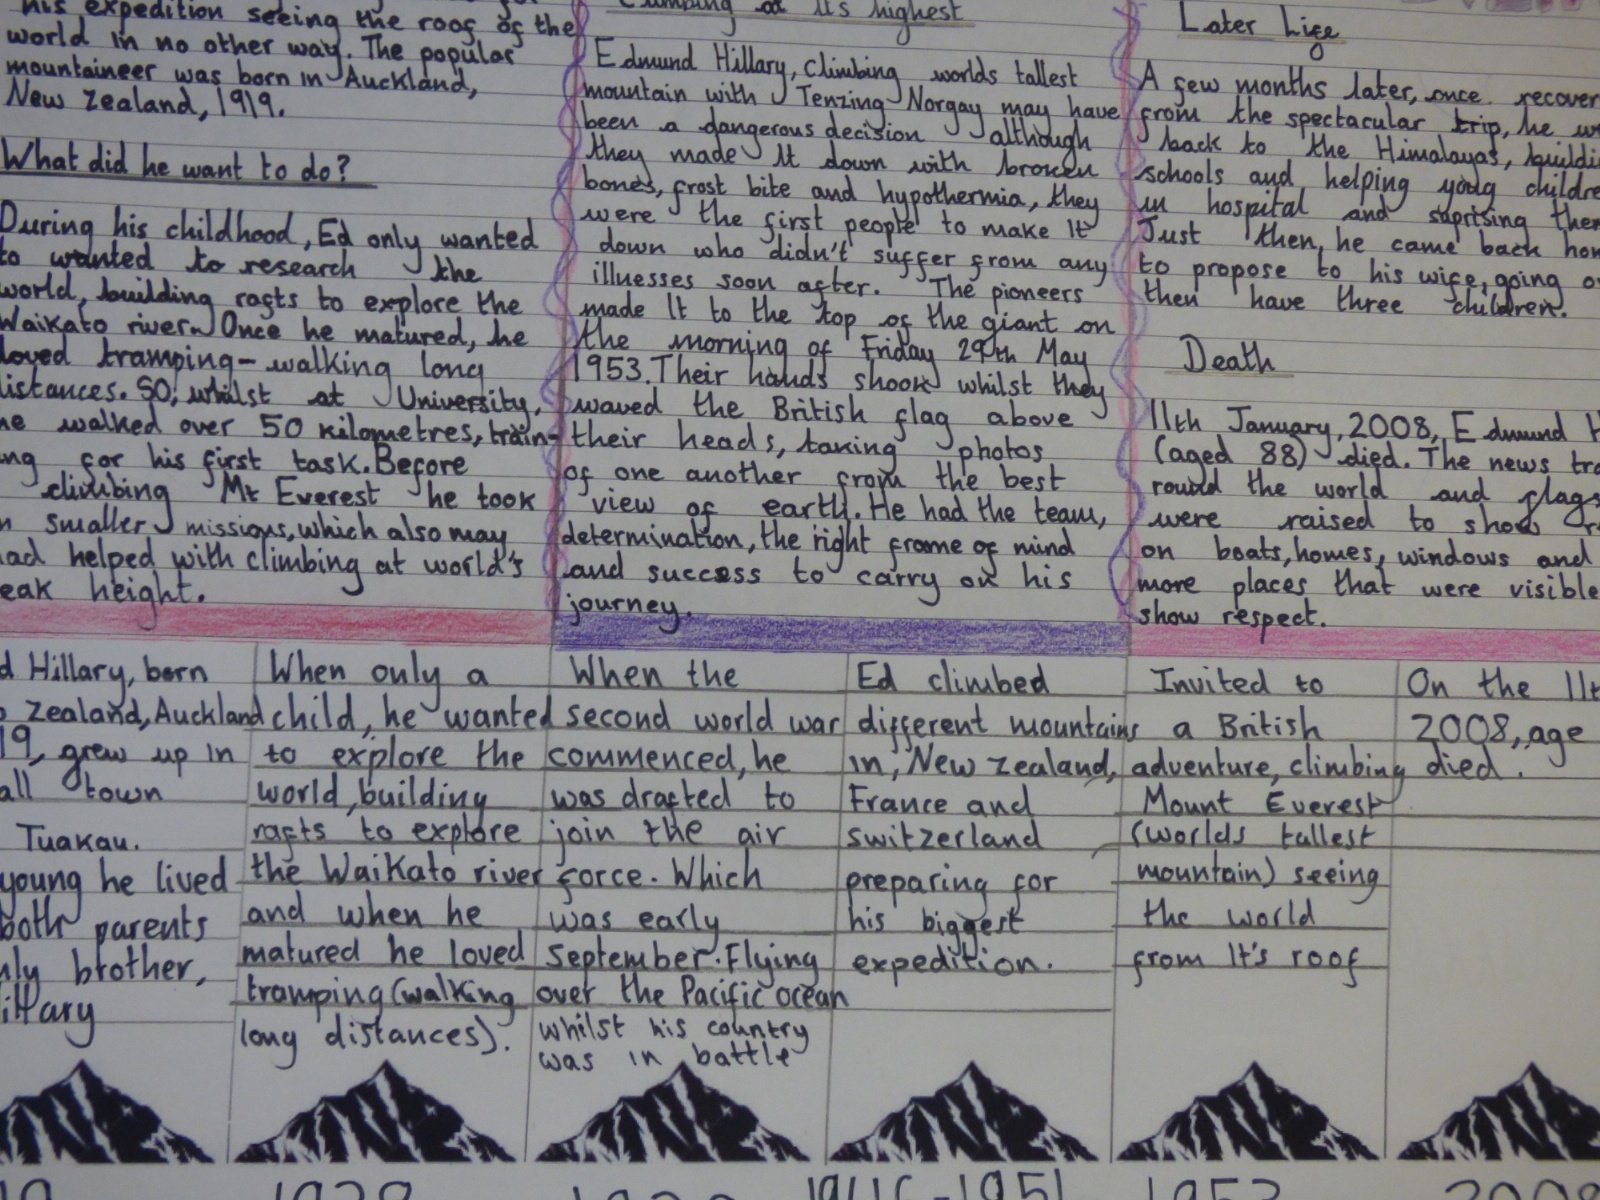 his expedition seeing the roof of the
world in no other way. The popular
mountaineer was born in Auckland,
New Zealand, 1919.
What did he want to do?
During his childhood, Ed only wanted
to wanted to research the
world, building rafts to explore the
Waikato river. Once he matured, he
loved tramping - walking long
distances. So, whilst at University,
he walked over 50 kilometres, train-
ing for his first task. Before
climbing Mt Everest he took
n smaller missions, which also may
had helped with climbing at world's
eak height.
Climbing at its highest
Edmund Hillary, climbing worlds tallest
mountain with Tenzing Norgay may have
been a dangerous decision although
they made It down with broken
bones, frost bite and hypothermia, they
were the first people to make It
down who didn't suffer from any
illnesses soon after. The pioneers
made It to the top of the giant on
the morning of Friday 29th May
1953. Their hands shook whilst they
waved the British flag above
their heads, taking photos
of one another from the best
view of earth. He had the team,
determination, the right frame of mind
and success to carry on his
journey.
Later Life
A few months later, once recover
from the spectacular trip, he w
back to the Himalayas, buildi
schools and helping young childre
in hospital and suprising them
Just then, he came back hom
to propose to his wife, going o
then have three children.
Death
11th January, 2008, Edmund H
(aged 88) died. The news tra
round the world and flags
were raised to show r
on boats, homes, windows and
more places that were visible
show respect.
d Hillary, born
Zealand, Auckland
19, grew up in
all town
Tuakau.
young he lived
both parents
nly brother,
illary
When only a
child, he wanted
to explore the
world, building
rafts to explore
the Waikato river
and when he
matured he loved
tramping (walking
long distances).
When the
second world war
commenced, he
was drafted to
join the air
force. Which
was early
September. Flying
over the Pacific ocean
whilst his country
was in battle
Ed climbed
different mountains
in, New Zealand,
France and
Switzerland
preparing for
his biggest
expedition.
Invited to
a British
adventure, climbing
Mount Everest
(worlds tallest
mountain) seeing
the world
from It's roof
On the 11t
2008, age
died.
19
1946-1951
1953
2008